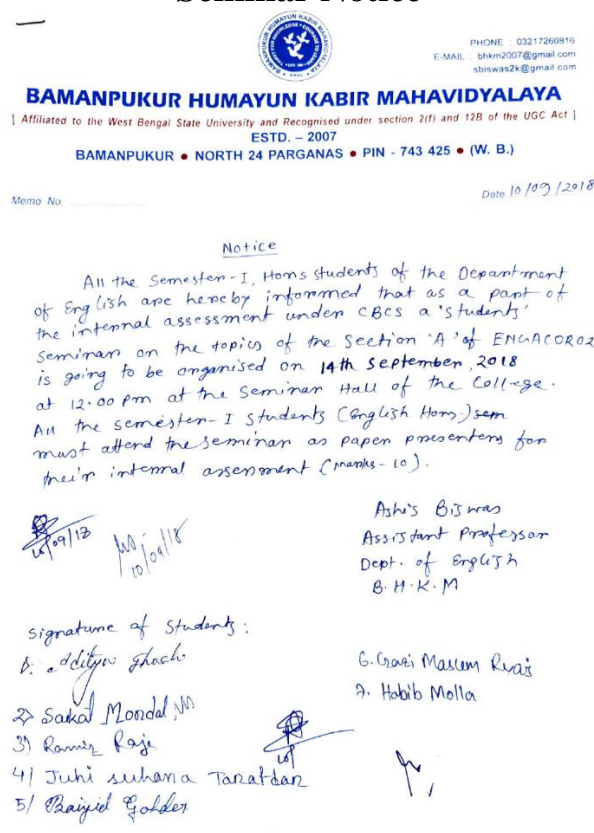 Seminar Notice
PHONE : 03217260816
E-MAIL : bhkm2007@gmail.com
sbiswas2k@gmail.com
BAMANPUKUR HUMAYUN KABIR MAHAVIDYALAYA
[ Affiliated to the West Bengal State University and Recognised under section 2(f) and 12B of the UGC Act ]
ESTD. – 2007
BAMANPUKUR ● NORTH 24 PARGANAS ● PIN - 743 425 ● (W. B.)
Memo No ....................
Date 10/09/2018
Notice
All the Semester-I, Hons students of the Department
of English are hereby informed that as a part of
the internal assessment under CBCS a 'students'
seminar on the topics of the Section 'A' of ENGACOR02
is going to be organised on 14th September, 2018
at 12.00 pm at the Seminar Hall of the College.
All the semester-I students (English Hons)
must attend the seminar as paper presenters for
their internal assesment (marks - 10).
10/09/18
10/09/18
Ashis Biswas
Assistant Professor
Dept. of English
B.H.K.M
Signature of Students :
Aditya Ghosh
2) Saikat Mondal
3) Ramiz Raja
4/ Juhi suhana Tarafdar
5/ Baiyid Golder
6. Gazi Masum
7. Habib Molla